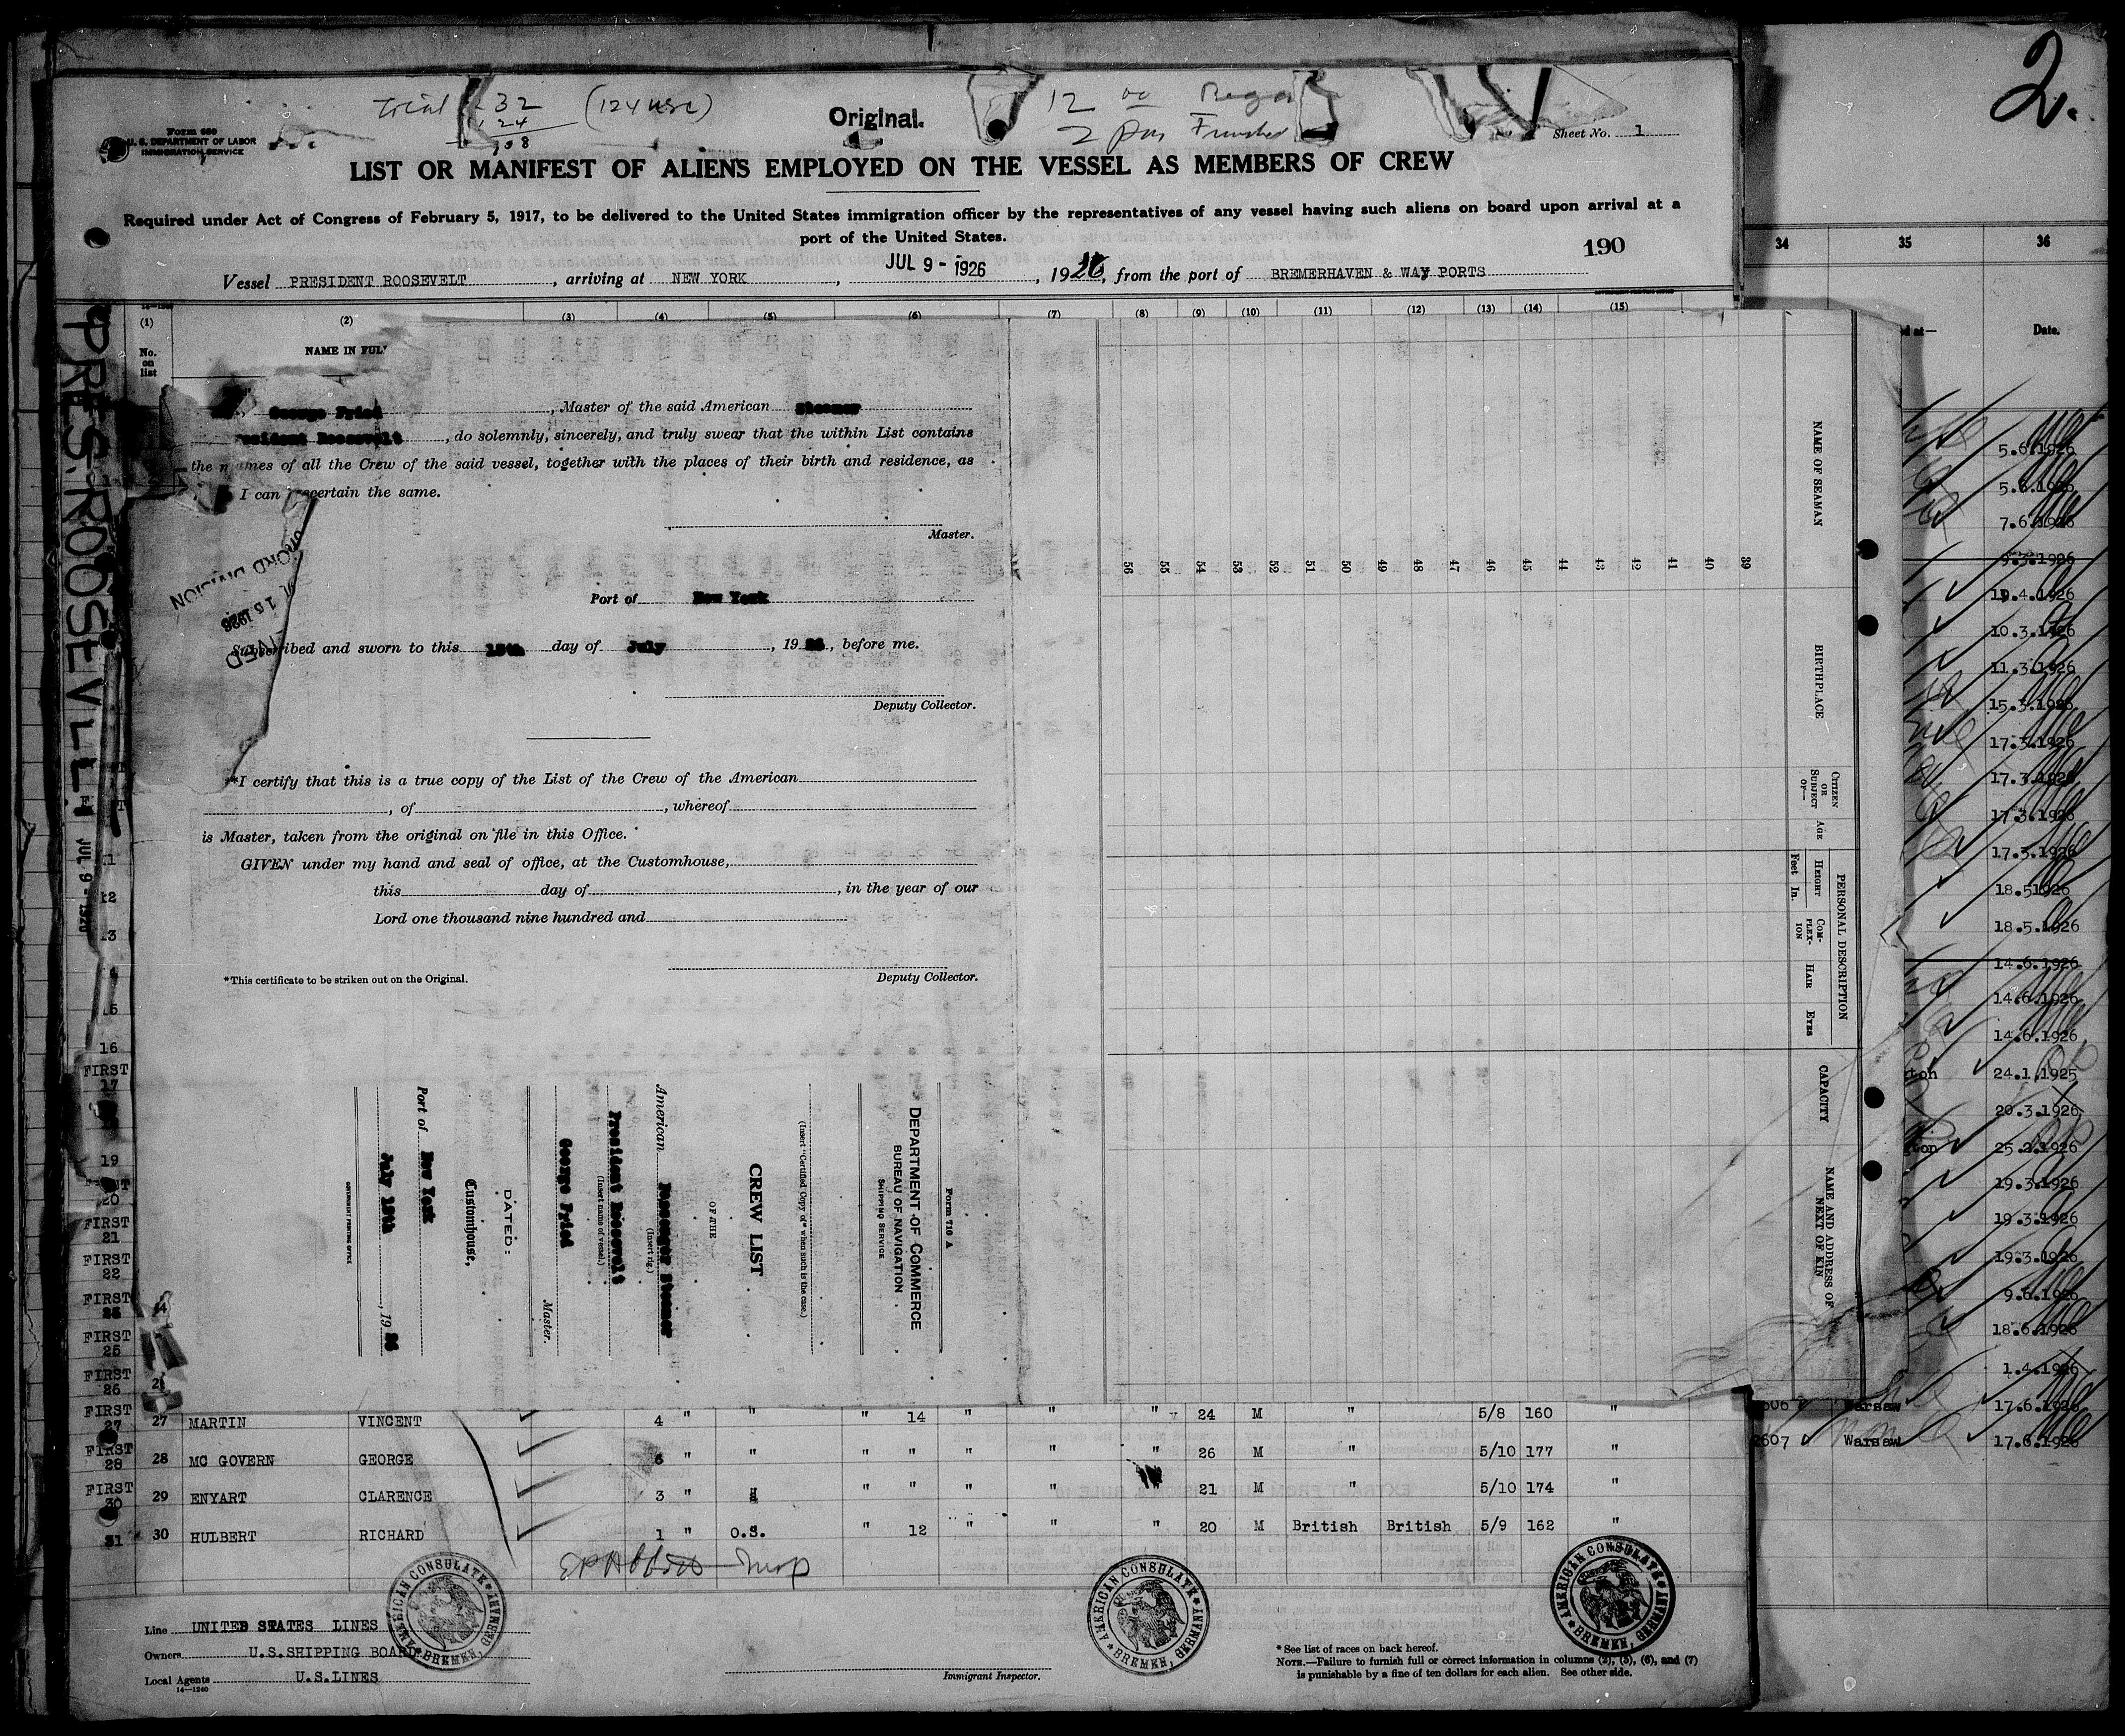 2.
(124 usc)
32
24
Original.
12 00
2 pm
Form 680
U. S. DEPARTMENT OF LABOR
IMMIGRATION SERVICE
Sheet No. 1
LIST OR MANIFEST OF ALIENS EMPLOYED ON THE VESSEL AS MEMBERS OF CREW
Required under Act of Congress of February 5, 1917, to be delivered to the United States immigration officer by the representatives of any vessel having such aliens on board upon arrival at a
port of the United States.
190
JUL 9 - 1926
Vessel PRESIDENT ROOSEVELT, arriving at NEW YORK, , 1926, from the port of BREMERHAVEN & WAY PORTS
(1) (2) (3) (4) (5) (6) (7) (8) (9) (10) (11) (12) (13) (14) (15)
No. on list
NAME IN FUL
George Fried, Master of the said American Steamer
resident Roosevelt, do solemnly, sincerely, and truly swear that the within List contains
the names of all the Crew of the said vessel, together with the places of their birth and residence, as
I can ascertain the same.
Master.
Port of New York
Subscribed and sworn to this 15th day of July, 1926, before me.
Deputy Collector.
*I certify that this is a true copy of the List of the Crew of the American
, of , whereof
is Master, taken from the original on file in this Office.
GIVEN under my hand and seal of office, at the Customhouse,
this day of , in the year of our
Lord one thousand nine hundred and
Deputy Collector.
*This certificate to be striken out on the Original.
Form 710 A
DEPARTMENT OF COMMERCE
BUREAU OF NAVIGATION
SHIPPING SERVICE
(Insert "Certified Copy of" when such is the case.)
CREW LIST
OF THE
American Passenger Steamer
(Insert rig.)
President Roosevelt
(Insert name of vessel.)
George Fried
Master.
DATED:
Customhouse,
Port of New York
July 15th, 1926
GOVERNMENT PRINTING OFFICE
NAME OF SEAMAN
BIRTHPLACE
CITIZEN OR SUBJECT OF—
AGE
PERSONAL DESCRIPTION
HEIGHT
Feet In.
COMPLEXION
HAIR
EYES
CAPACITY
NAME AND ADDRESS OF NEXT OF KIN
56 55 54 53 52 51 50 49 48 47 46 45 44 43 42 41 40 39
PRES. ROOSEVELT
JUL 9 - 1926
12
13
16
FIRST
17
19
20
FIRST
21
FIRST
22
FIRST
FIRST
25
FIRST
26
FIRST
27
FIRST
28
FIRST
30
31
27 MARTIN VINCENT 4 " " " 14 " " " 24 M " 5/8 160 "
28 MC GOVERN GEORGE 6 " " " " " " " 26 M " 5/10 177 "
29 ENYART CLARENCE 3 " " " " " " 21 M " 5/10 174 "
30 HULBERT RICHARD 1 " O.S. " 12 " " " 20 M British British 5/9 162 "
AMERICAN CONSULATE BREMEN, GERMANY
AMERICAN CONSULATE BREMEN, GERMANY
AMERICAN CONSULATE BREMEN, GERMANY
Line UNITED STATES LINES
Owners U.S.SHIPPING BOARD
Local Agents U.S.LINES
14—1240
Immigrant Inspector.
* See list of races on back hereof.
NOTE.—Failure to furnish full or correct information in columns (2), (5), (6), and (7)
is punishable by a fine of ten dollars for each alien. See other side.
34 35 36
Date.
5.6.1926
5.6.1926
7.6.1926
9.3.1926
10.3.1926
11.3.1926
15.3.1926
17.3.1926
17.3.1926
17.3.1926
17.3.1926
18.51926
18.5.1926
14.6.1926
14.6.1926
14.6.1926
24.1.1925
20.3.1926
25.2.1926
19.3.1926
19.3.1926
19.3.1926
9.6.1926
18.6.1926
1.4.1926
Warsaw 17.6.1926
2607 Warsaw 17.6.1926